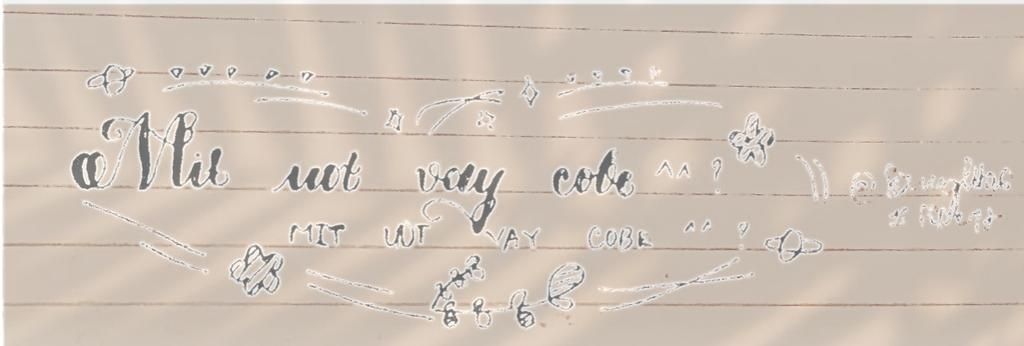 Mit wot vay cobe ^^ ?
MIT WOT VAY COBE ^^ ?